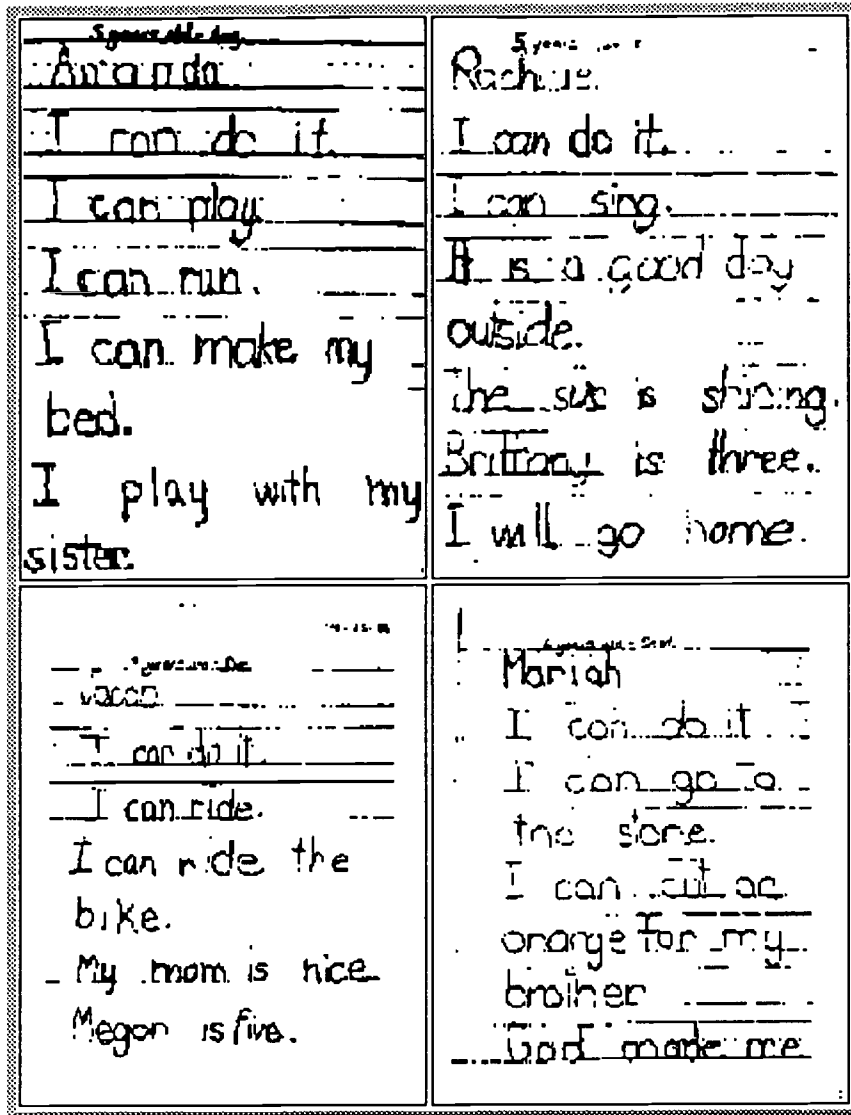 Amanda
I can do it.
I can play.
I can run.
I can make my
bed.
I play with my
sister.
5 years
I can do it.
I can sing.
It is a good day
outside.
The sun is shining.
Brittany is three.
I will go home.
I can do it.
I can ride.
I can ride the
bike.
My mom is nice
Megan is five.
Mariah
I can do it
I can go to
the store.
I can cut an
orange for my
brother
God made me